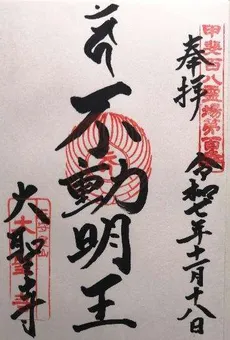 甲斐百八霊場第百番
奉拝
令和七年十一月十八日
不動明王
大聖寺